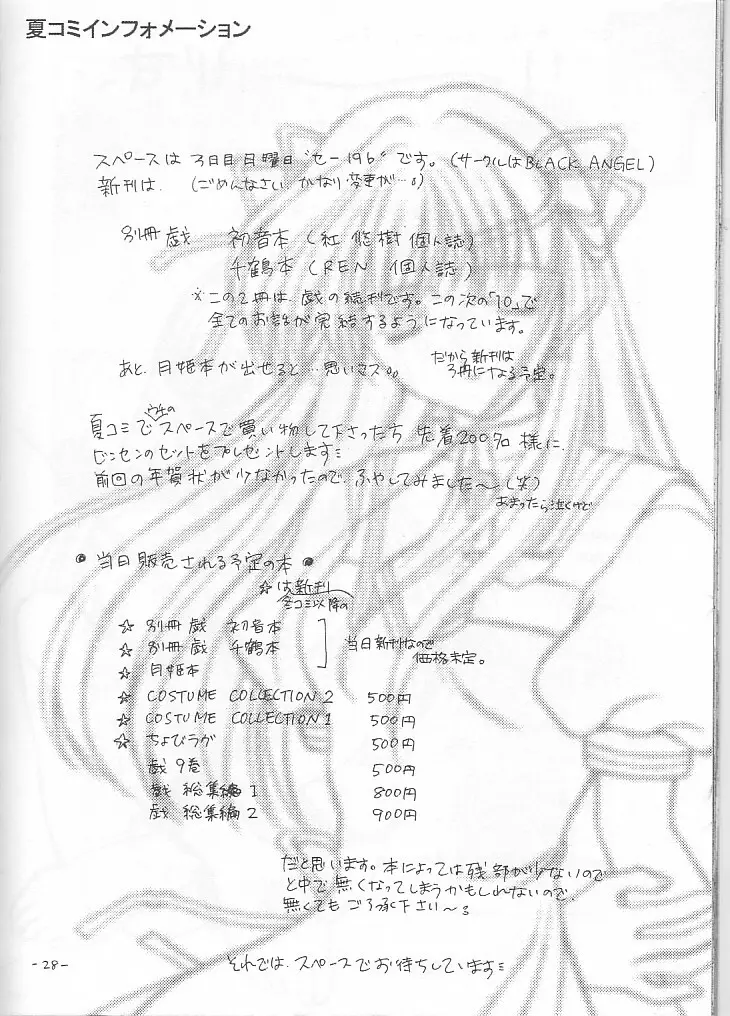 夏コミインフォメーション
スペースは 3日目月曜日 "セー19b" です。(サークルはBLACK ANGEL)
新刊は. (ごめんなさい. かなり変更が…。)
別冊 戯 初音本 (紅 悠樹 個人誌)
千鶴本 (REN 個人誌)
※この2冊は. 戯の続刊です。この次の「10」で
全てのお話が完結するようになっています。
あと. 月姫本が出せると…思いマス。。
だから新刊は
3冊になる予定。
夏コミでウチのスペースで買い物して下さった方 先着200名様に.
ビンセンのセットをプレゼントします
前回の年賀状が少なかったので. ふやしてみました〜 (笑)
あまったら泣くけど
● 当日販売される予定の本 ●
☆は新刊
冬コミ以降の
☆ 別冊 戯 初音本
☆ 別冊 戯 千鶴本
☆ 月姫本
当日新刊なので
価格未定。
☆ COSTUME COLLECTION 2 500円
☆ COSTUME COLLECTION 1 500円
☆ ちょびラヴ 500円
戯 9巻 500円
戯 総集編 1 800円
戯 総集編 2 900円
だと思います。本によっては残部が少ないので
と中で無くなってしまうかもしれないので.
無くてもご了承下さい〜
それでは. スペースでお待ちしています
-28-